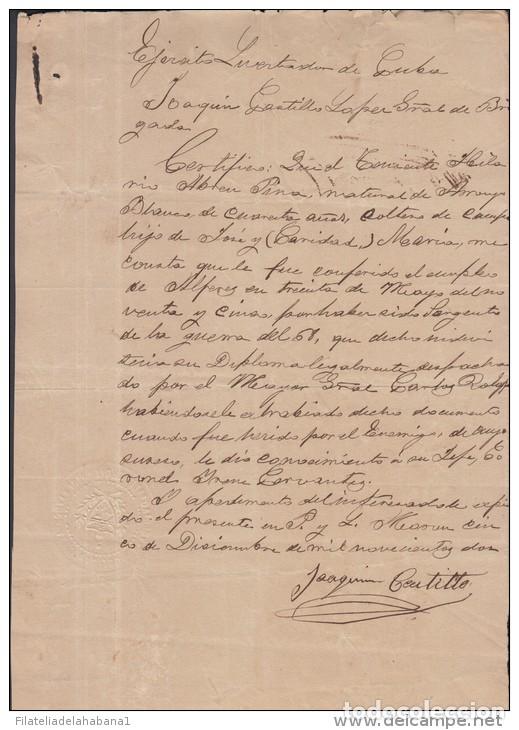 Ejército Livertador de Cuba
Joaquin Castillo Lopez Gral de Bri
gada
Certifico: Que el Teniente Hila
rio Abreu Pina, natural de Arroyo
Blanco, de cuarenta años, soltero de campo
hijo de José y (Caridad,) María, me
consta que le fue conferido el empleo
de Alferez en treinta de Mayo del no
venta y cinco, por haber sido Sargento
de la guerra del 68, que dicho individ
tenia su Diploma legalmente despacha
do por el Mayor Gral Carlos Roloff
habiendosele extrabiado dicho documento
cuando fue herido por el Enemigo, de cuyo
suceso, le dio conocimiento á su Jefe, Co
ronel Cervantes
Y apedimento del interesado le expi
do el presente en P. y L. Moron cin
co de Disiembre de mil novecientos dos
Joaquin Castillo
Filateliadelahabana1
todocoleccion
© delcampe.net